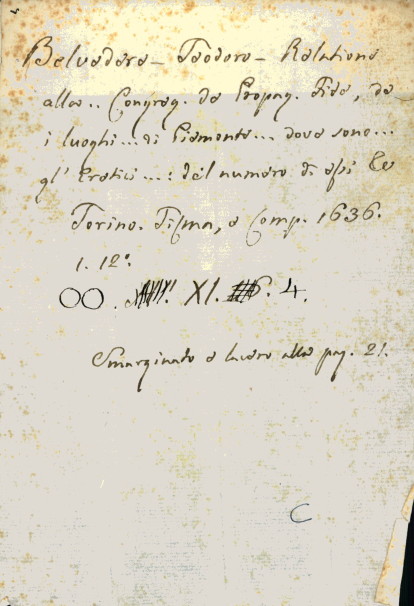 Belvedere - Teodoro - Relatione
alla.. Congreg. de Propag. Fide, de
i luoghi... di Piemonte... dove sono...
gl' Eretici...: del numero di essi &c
Torino. Tisma, e Comp. 1636.
1. 12°.
OO. XI. 4.
Smarginato e lacero alla pag. 21.
C